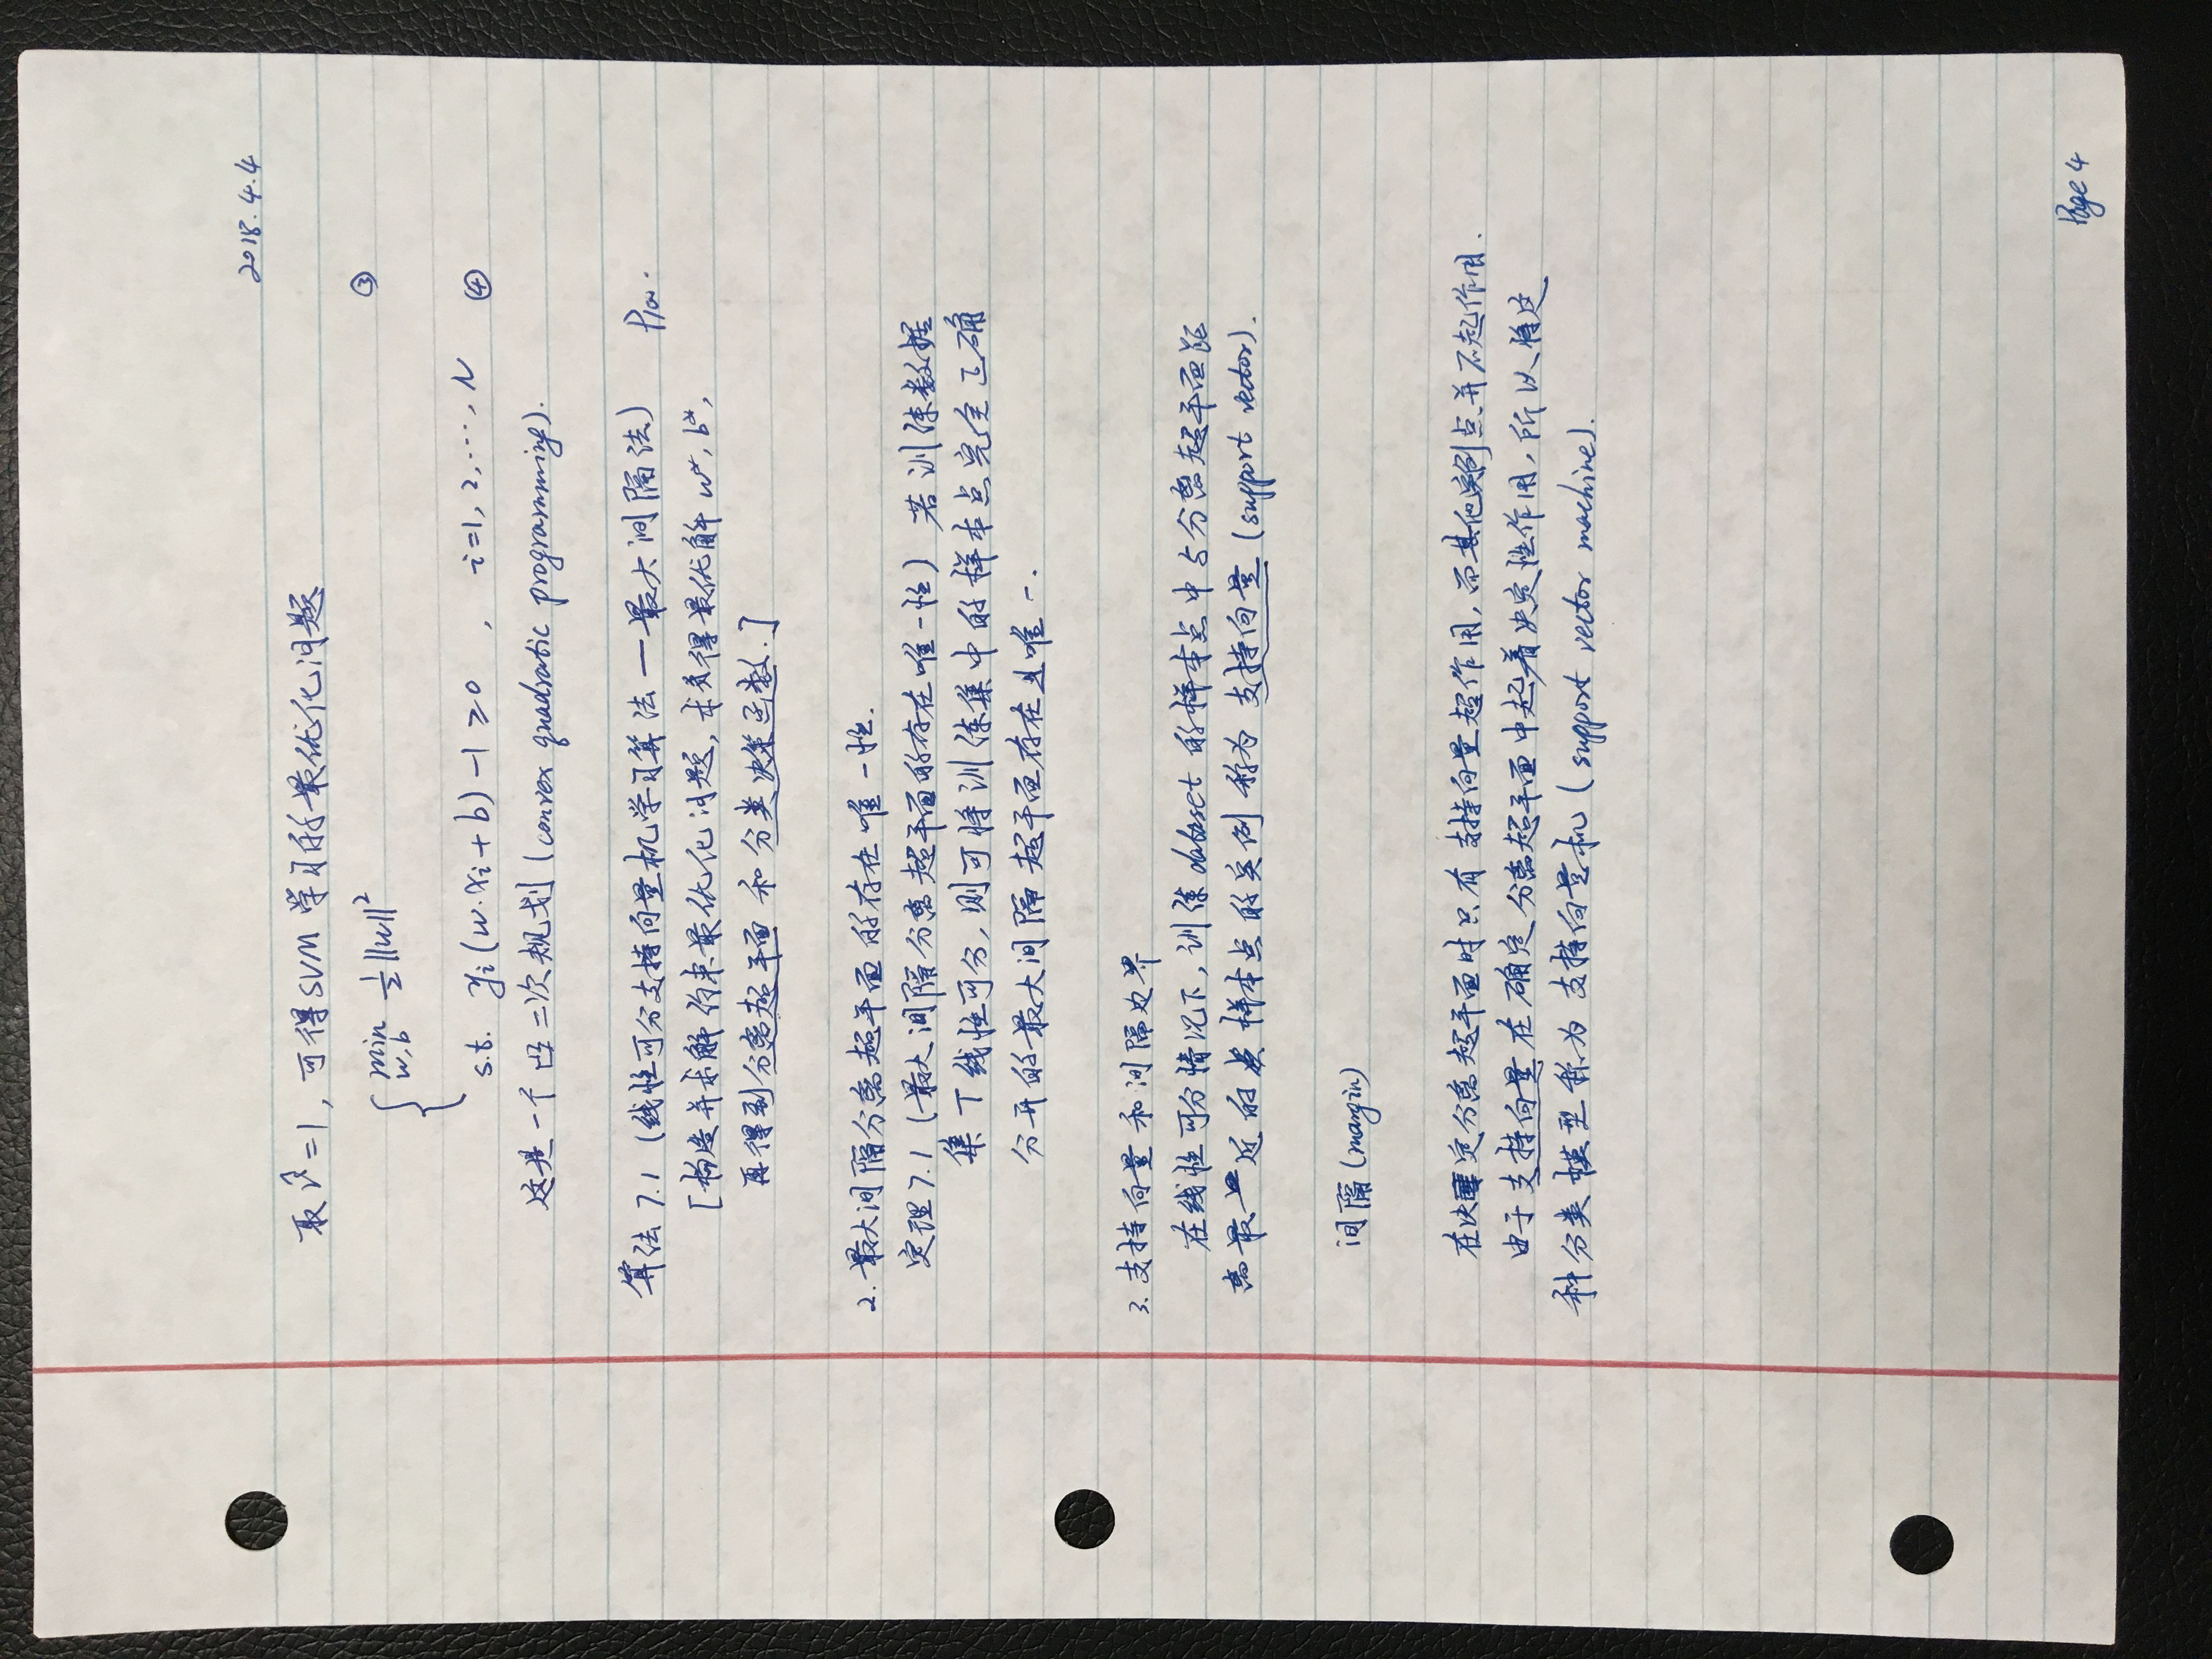 2018.4.4
取 γ̂=1, 可得SVM 学习的最优化问题
min w,b ½||w||² ③
s.t. yi(w·xi+b)-1≥0 , i=1,2,···,N ④
这是一个凸二次规划(convex quadratic programming).
算法7.1 (线性可分支持向量机学习算法—最大间隔法)
[构造并求解约束最优化问题, 求得最优解 w*, b*,
再得到分离超平面 和 分类决策函数.]
2. 最大间隔分离超平面的存在唯一性.
定理7.1 (最大间隔分离超平面的存在唯一性) 若训练数据
集T线性可分, 则可将训练集中的样本点完全正确
分开的最大间隔超平面存在且唯一.
3. 支持向量和间隔边界
在线性可分情况下, 训练dataset 的样本点中与分离超平面距
离最近的样本点的实例 称为 支持向量 (support vector).
间隔(margin)
在决定分离超平面时只有支持向量超作用, 而其他实例点并不起作用.
由于支持向量在确定分离超平面中起着决定性作用, 所以将这
种分类模型称为支持向量机 (support vector machine).
Page 4